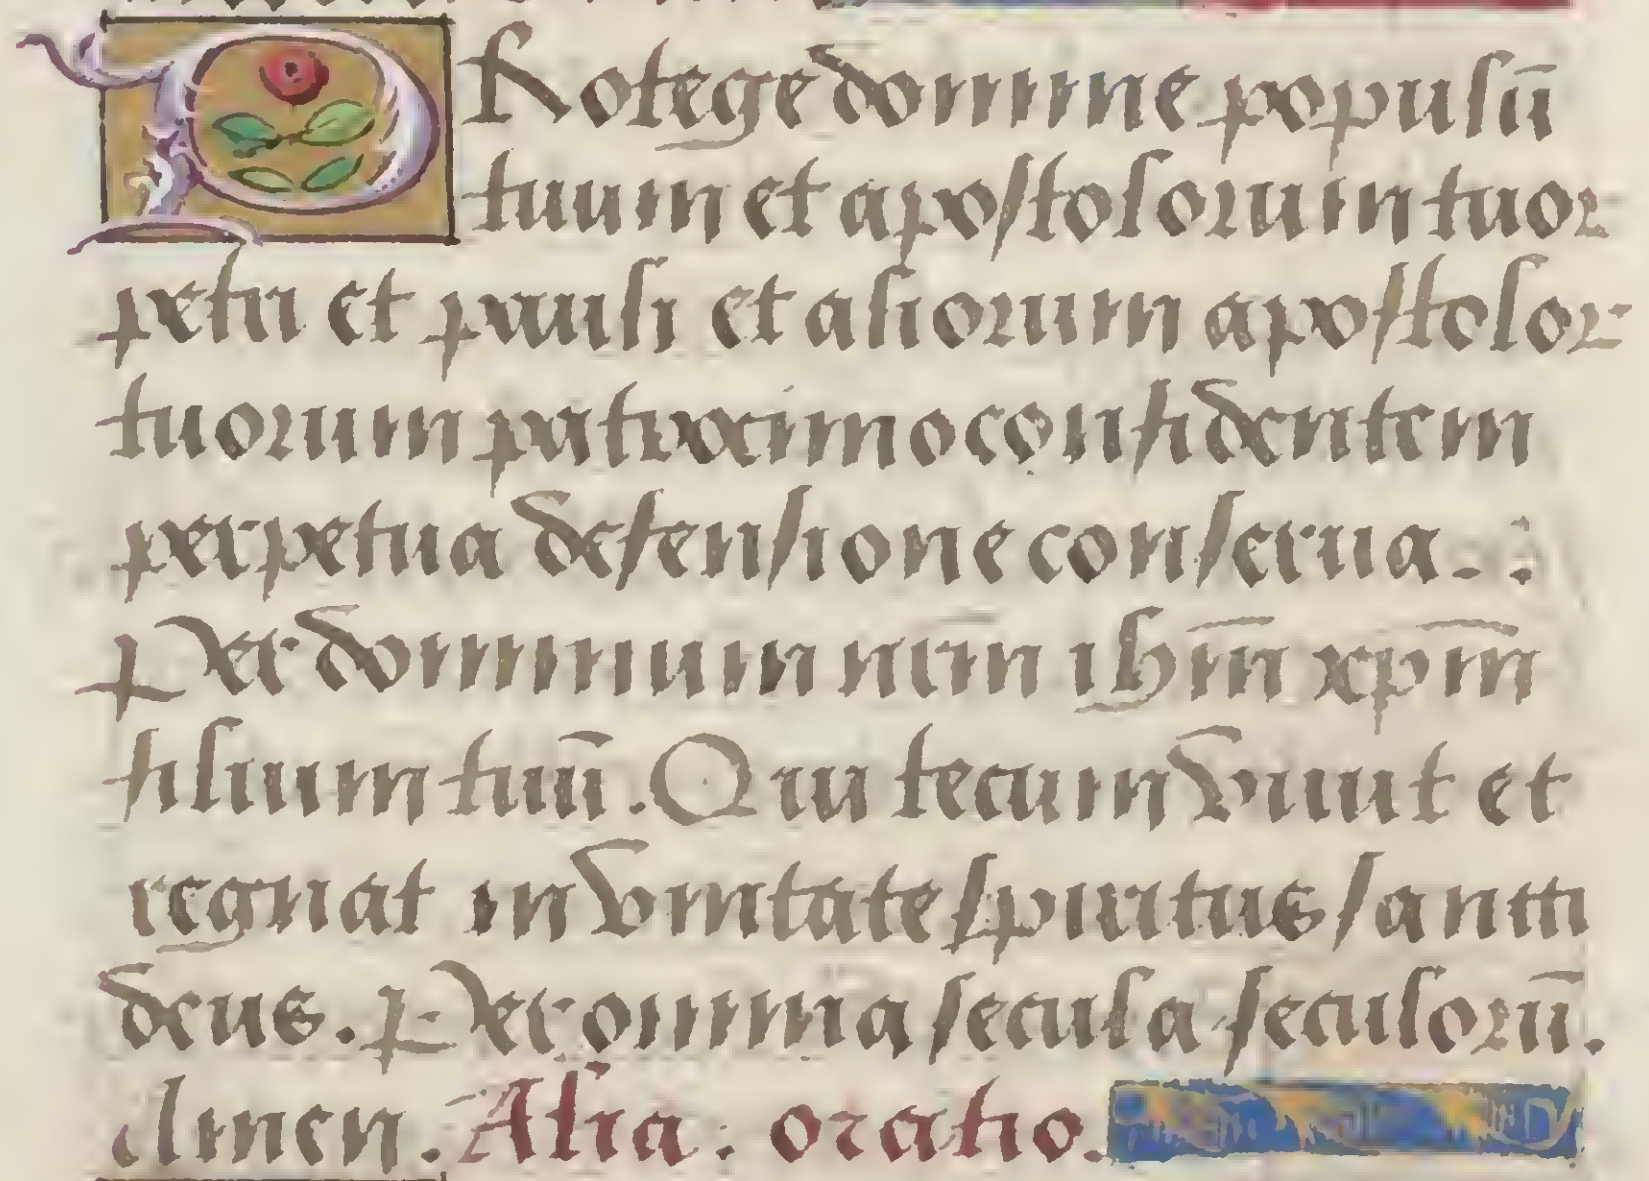 PRotege domine populū
tuum et apostolorum tuor
petri et pauli et aliorum apostolor
tuorum patrocinio confidentem
perpetua defensione conserua. :
Per dominum nr̄m ihm̄ xp̄m
filium tuū. Qui tecum viuit et
regnat in vnitate spiritus sancti
deus. Per omnia secula seculorū.
Amen. Alia: oratio.